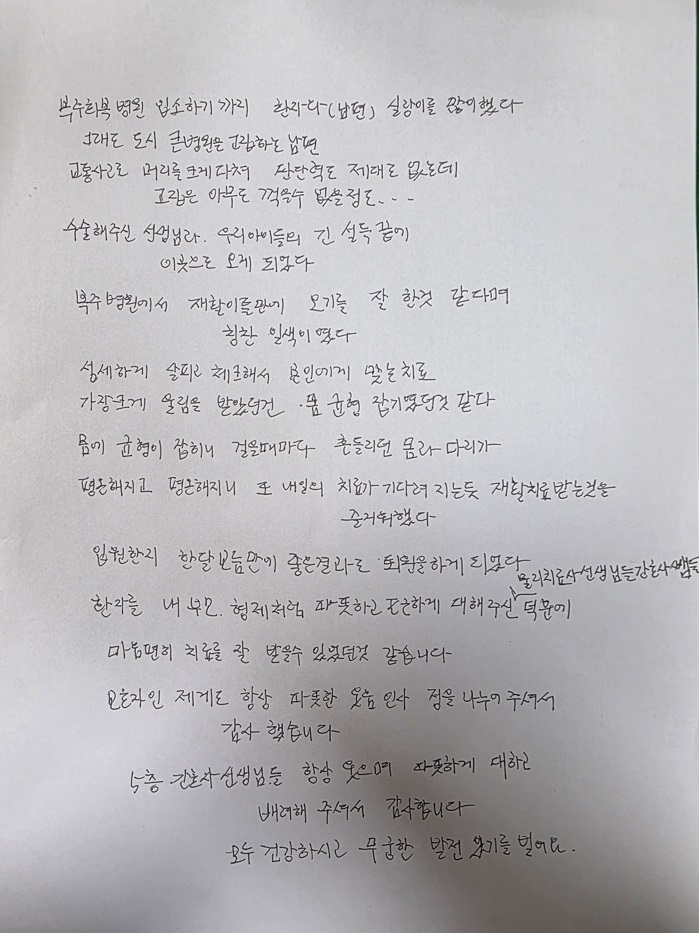 복주회복병원 입소하기 까지 환자다(남편) 실랑이를 많이했다
그래도 도시 큰병원은 고집하는 남편
교통사고로 머리를 크게 다쳐 판단력도 제대로 없는데
고집은 아무도 꺽을수 없을정도...
수술해주신 선생님과. 우리아이들의 긴 설득 끝에
이곳으로 오게 되었다
복주병원에서 재활이틀만에 오기를 잘 한것 같다며
칭찬 일색이였다
섬세하게 살피고 체크해서 본인에게 맞는치료
가장크게 울림을 받았던건 ·몸 균형 잡기였던것 같다
몸에 균형이 잡히니 걸을때마다 흔들리던 몸과 다리가
평온해지고 평온해지니 또 내일의 치료가 기다려 지는듯 재활치료받는것을
즐거워했다
입원한지 한달보름만에 좋은결과로 퇴원을하게 되었다
물리치료사선생님들간호사쌤들
환자를 내 부모. 형제처럼 따뜻하고 포근하게 대해주신 덕분에
마음편히 치료를 잘 받을수 있었던것 같습니다
보호자인 제게도 항상 따뜻한 웃음 인사 정을 나누어 주셔서
감사 했습니다
5층 간호사선생님들 항상 웃으며 따뜻하게 대하고
배려해 주셔서 감사합니다
모두 건강하시고 무궁한 발전 있기를 빌어요.